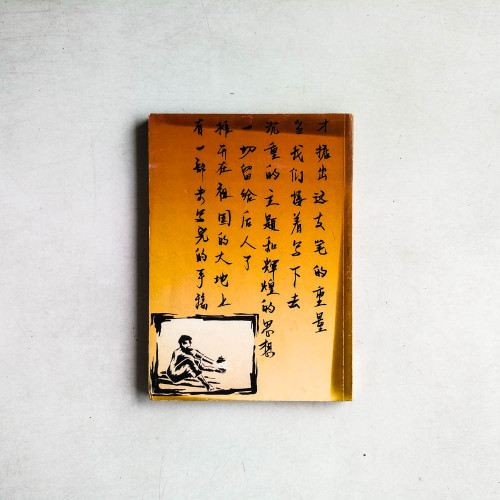 有一部未竟的手稿
摊开在祖国的大地上
一切留给后人了
沉重的主题和辉煌的思想
当我们接着写下去
才掂出这支笔的重量